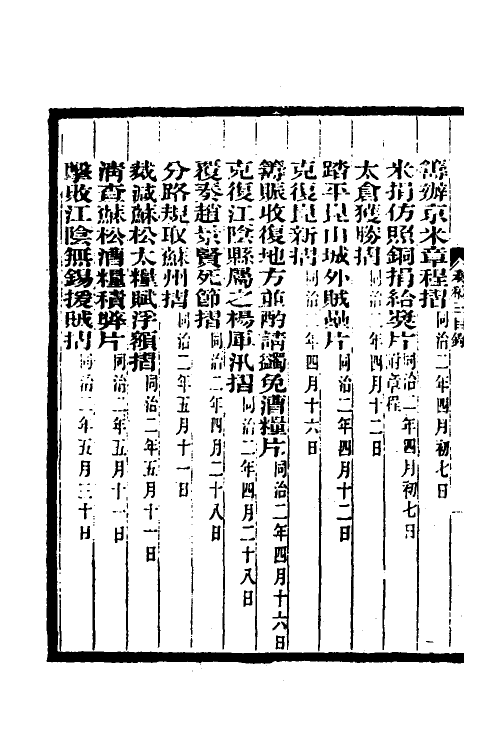 籌辦京米章程摺同治二年四月初七日
米捐仿照銅捐給奬片附章程同治二年四月初七日
太倉獲勝摺同治二年四月十二日
踏平崑山城外賊壘片同治二年四月十二日
克復崑新摺同治二年四月十六日
籌賑收復地方並酌請蠲免漕糧片同治二年四月十六日
克復江陰縣屬之楊厙汛摺同治二年四月二十八日
覆奏趙景賢死節摺同治二年四月二十八日
分路規取蘇州摺同治二年五月十一日
裁減蘇松太糧賦浮額摺同治二年五月十一日
清查蘇松漕糧積弊片同治二年五月十一日
擊敗江陰無錫援賊摺同治二年五月三十日